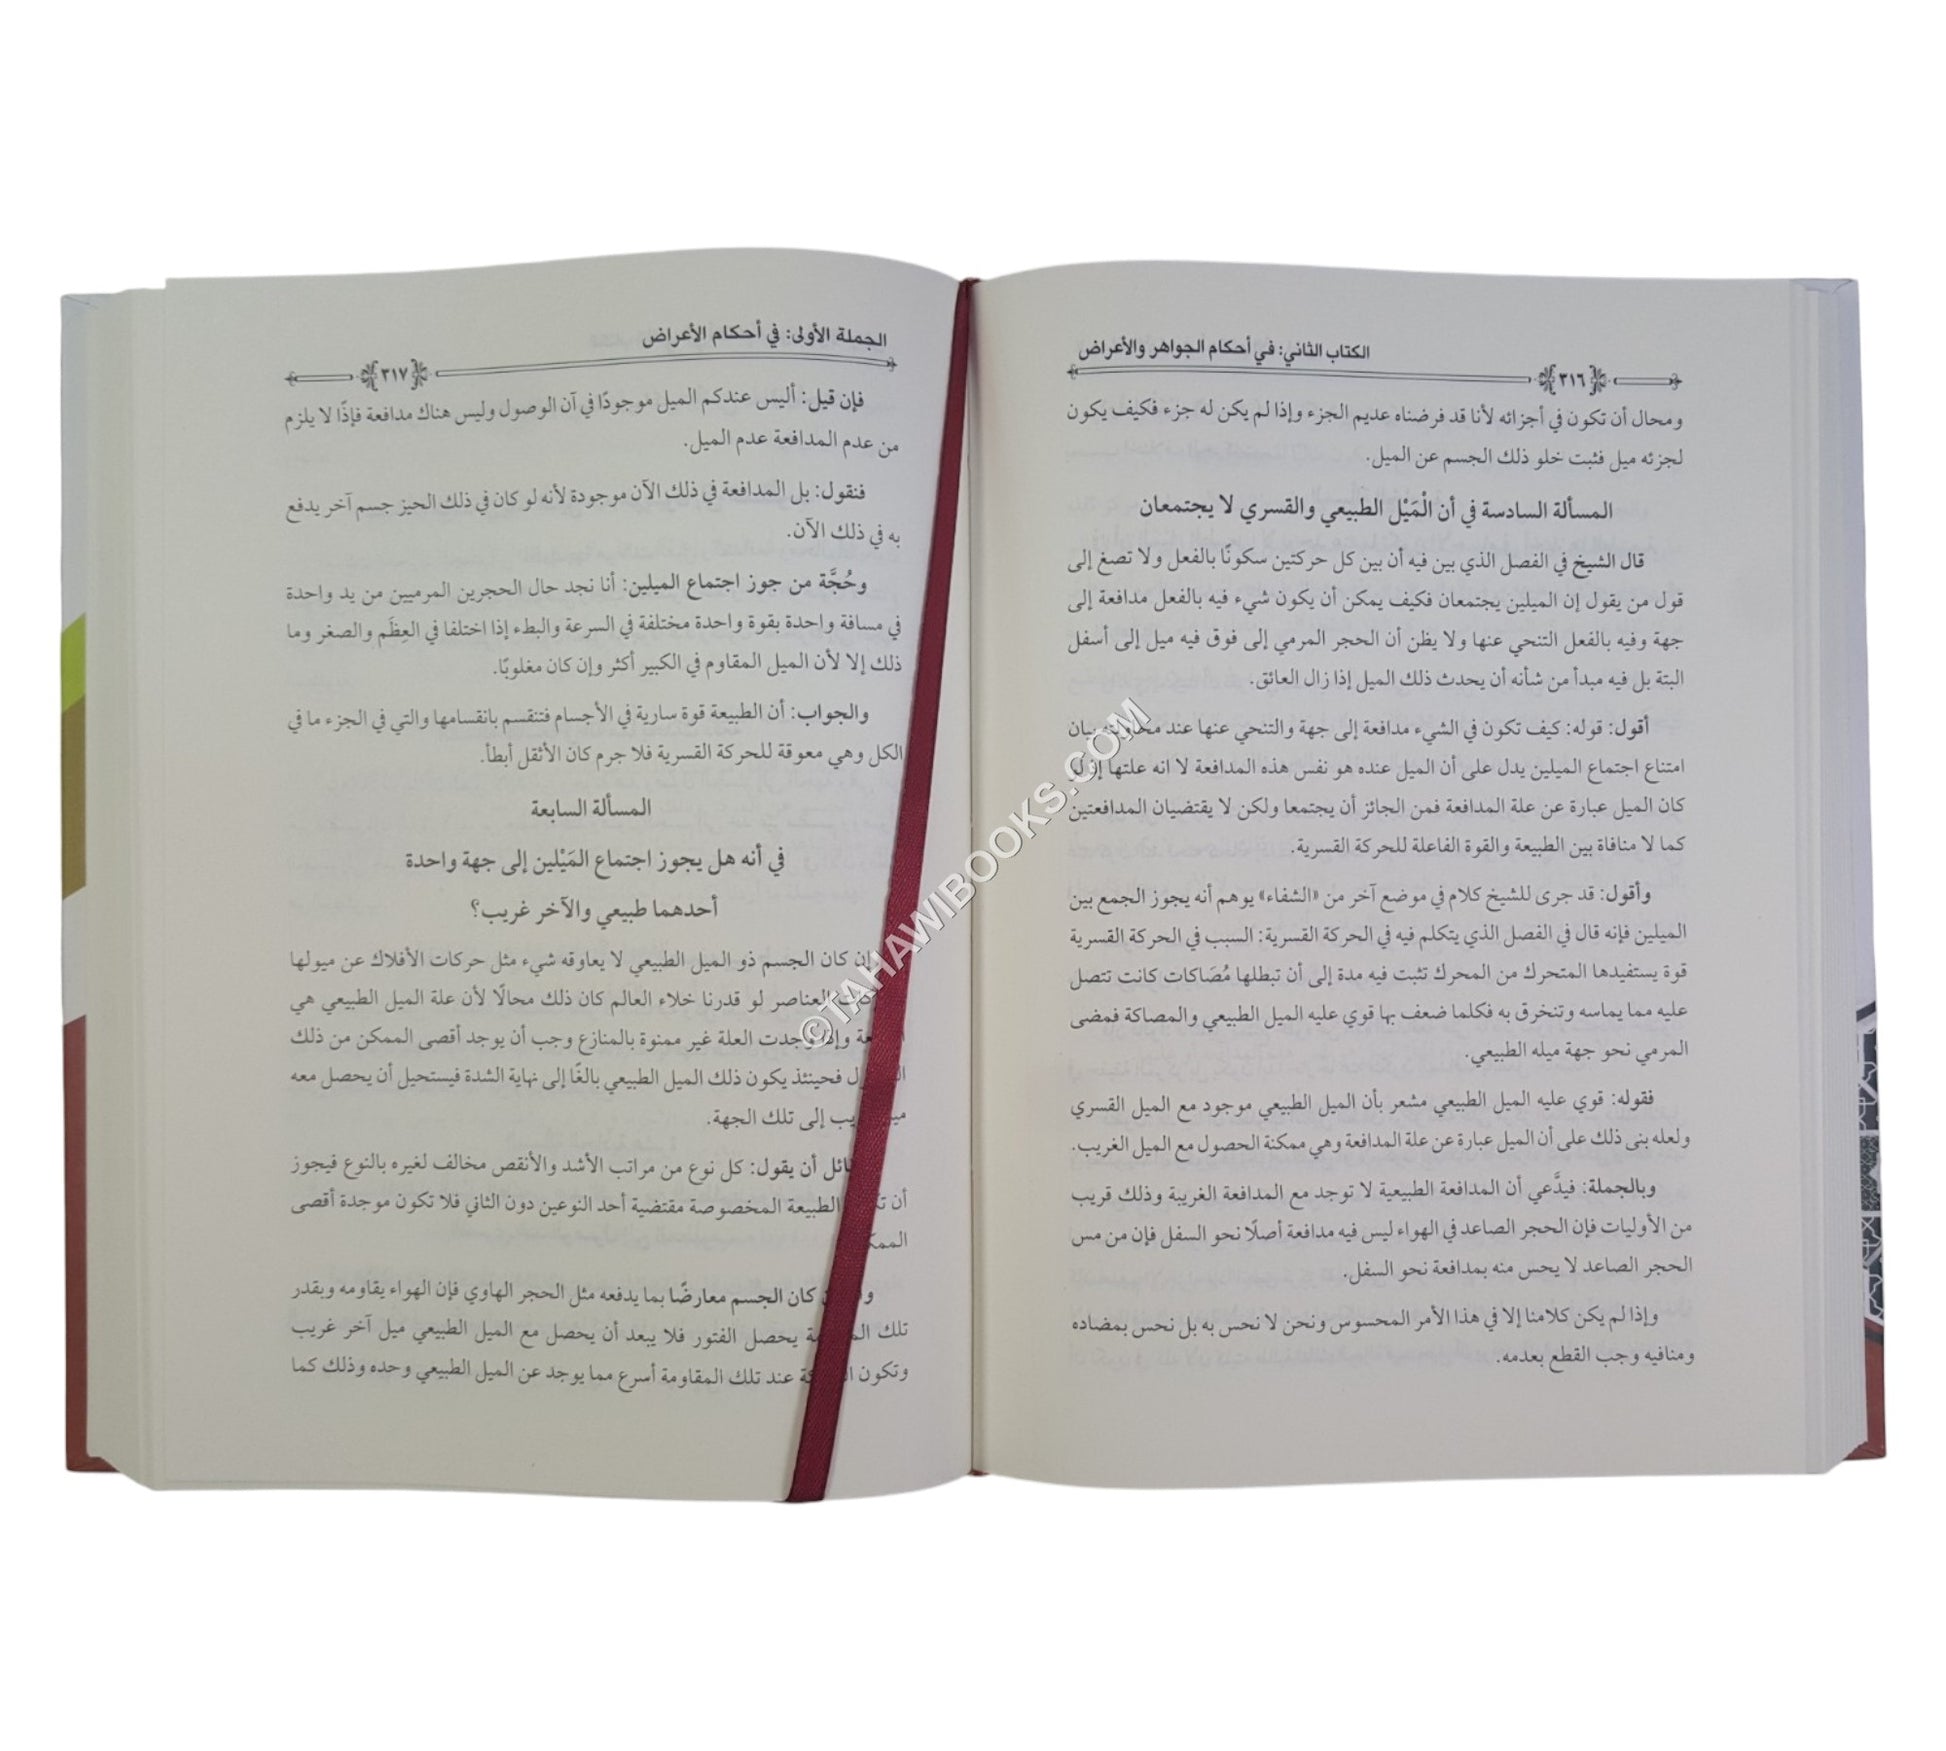 الكتاب الثاني: في أحكام الجواهر والأعراض
٣١٦
ومحال أن تكون في أجزائه لأنا قد فرضناه عديم الجزء وإذا لم يكن له جزء فكيف يكون
لجزئه ميل فثبت خلو ذلك الجسم عن الميل.
المسألة السادسة في أن الْمَيْل الطبيعي والقسري لا يجتمعان
قال الشيخ في الفصل الذي بين فيه أن بين كل حركتين سكونًا بالفعل ولا تصغ إلى
قول من يقول إن الميلين يجتمعان فكيف يمكن أن يكون شيء فيه بالفعل مدافعة إلى
جهة وفيه بالفعل التنحي عنها ولا يظن أن الحجر المرمي إلى فوق فيه ميل إلى أسفل
البتة بل فيه مبدأ من شأنه أن يحدث ذلك الميل إذا زال العائق.
أقول: قوله: كيف تكون في الشيء مدافعة إلى جهة والتنحي عنها عند محاولته بيان
امتناع اجتماع الميلين يدل على أن الميل عنده هو نفس هذه المدافعة لا انه علتها إذ لو
كان الميل عبارة عن علة المدافعة فمن الجائز أن يجتمعا ولكن لا يقتضيان المدافعتين
كما لا منافاة بين الطبيعة والقوة الفاعلة للحركة القسرية.
وأقول: قد جرى للشيخ كلام في موضع آخر من «الشفاء» يوهم أنه يجوز الجمع بين
الميلين فإنه قال في الفصل الذي يتكلم فيه في الحركة القسرية: السبب في الحركة القسرية
قوة يستفيدها المتحرك من المحرك تثبت فيه مدة إلى أن تبطلها مُصَاكات كانت تتصل
عليه مما يماسه وتنخرق به فكلما ضعف بها قوي عليه الميل الطبيعي والمصاكة فمضى
المرمي نحو جهة ميله الطبيعي.
فقوله: قوي عليه الميل الطبيعي مشعر بأن الميل الطبيعي موجود مع الميل القسري
ولعله بنى ذلك على أن الميل عبارة عن علة المدافعة وهي ممكنة الحصول مع الميل الغريب.
وبالجملة: فيدَّعي أن المدافعة الطبيعية لا توجد مع المدافعة الغريبة وذلك قريب
من الأوليات فإن الحجر الصاعد في الهواء ليس فيه مدافعة أصلًا نحو السفل فإن من مس
الحجر الصاعد لا يحس منه بمدافعة نحو السفل.
وإذا لم يكن كلامنا إلا في هذا الأمر المحسوس ونحن لا نحس به بل نحس بمضاده
ومنافيه وجب القطع بعدمه.
الجملة الأولى: في أحكام الأعراض
٣١٧
فإن قيل: أليس عندكم الميل موجودًا في آن الوصول وليس هناك مدافعة فإذًا لا يلزم
من عدم المدافعة عدم الميل.
فنقول: بل المدافعة في ذلك الآن موجودة لأنه لو كان في ذلك الحيز جسم آخر يدفع
به في ذلك الآن.
وحُجَّة من جوز اجتماع الميلين: أنا نجد حال الحجرين المرميين من يد واحدة
في مسافة واحدة بقوة واحدة مختلفة في السرعة والبطء إذا اختلفا في العِظَم والصغر وما
ذلك إلا لأن الميل المقاوم في الكبير أكثر وإن كان مغلوبًا.
والجواب: أن الطبيعة قوة سارية في الأجسام فتنقسم بانقسامها والتي في الجزء ما في
الكل وهي معوقة للحركة القسرية فلا جرم كان الأثقل أبطأ.
المسألة السابعة
في أنه هل يجوز اجتماع المَيْلين إلى جهة واحدة
أحدهما طبيعي والآخر غريب؟
إن كان الجسم ذو الميل الطبيعي لا يعاوقه شيء مثل حركات الأفلاك عن ميولها
العناصر لو قدرنا خلاء العالم كان ذلك محالًا لأن علة الميل الطبيعي هي
وإذا وجدت العلة غير ممنوة بالمنازع وجب أن يوجد أقصى الممكن من ذلك
فحينئذ يكون ذلك الميل الطبيعي بالغًا إلى نهاية الشدة فيستحيل أن يحصل معه
إلى تلك الجهة.
أن يقول: كل نوع من مراتب الأشد والأنقص مخالف لغيره بالنوع فيجوز
أن الطبيعة المخصوصة مقتضية أحد النوعين دون الثاني فلا تكون موجدة أقصى
كان الجسم معارضًا بما يدفعه مثل الحجر الهاوي فإن الهواء يقاومه وبقدر
تلك يحصل الفتور فلا يبعد أن يحصل مع الميل الطبيعي ميل آخر غريب
وتكون عند تلك المقاومة أسرع مما يوجد عن الميل الطبيعي وحده وذلك كما
©TAHAWIBOOKS.COM